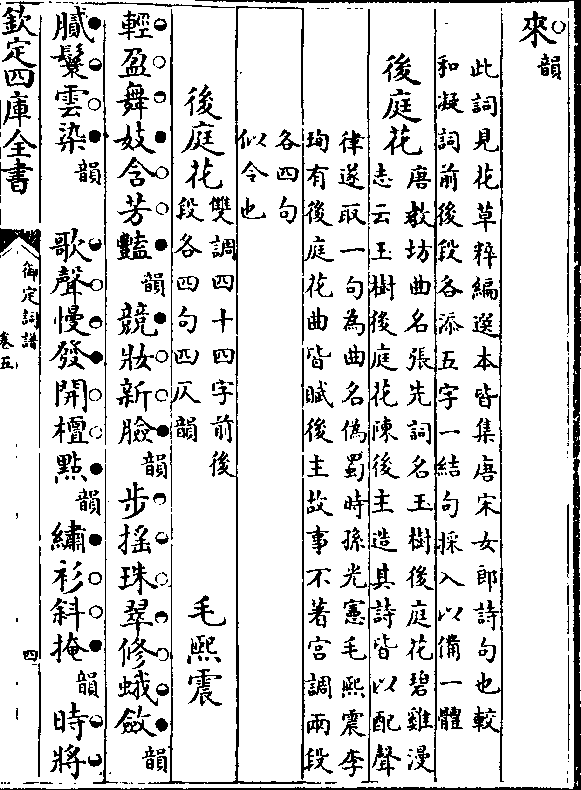 來韻
此詞見花草粹編選本皆集唐宋女郎詩句也較
和凝詞前後段各添五字一結句採入以備一體
後庭花
唐教坊曲名張先詞名玉樹後庭花碧雞漫
志云玉樹後庭花陳後主造其詩皆以配聲
律遂取一句為曲名偽蜀時孫光憲毛熙震李
珣有後庭花曲皆賦後主故事不著宮調兩段
各四句
似令也
後庭花
雙調四十四字前後
段各四句四仄韻
毛熙震
輕盈舞妓含芳豔韻競妝新臉韻步搖珠翠修蛾斂韻
膩鬟雲染韻歌聲慢發開檀點韻繡衫斜掩韻時將
欽定四庫全書
御定詞譜
卷五
四